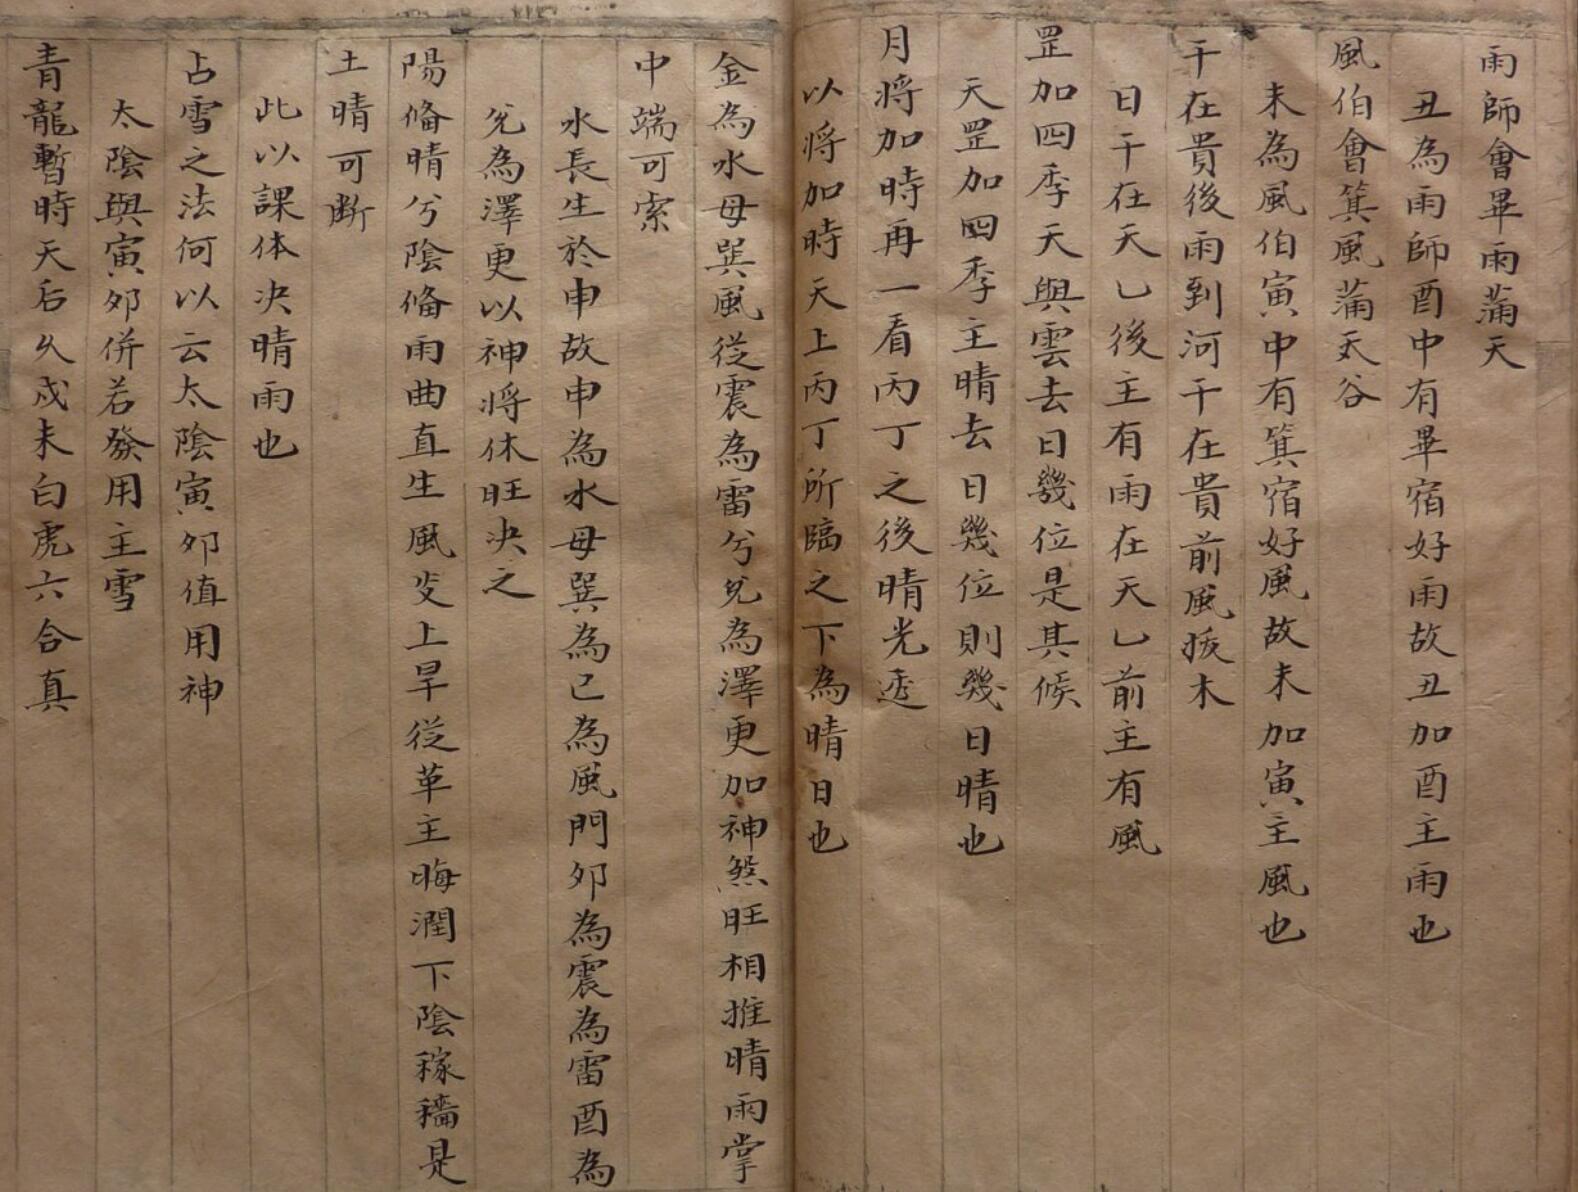 雨師會畢雨蒲天
丑為雨師酉中有畢宿好雨故丑加酉主雨也
風伯會箕風蒲天谷
未為風伯寅中有箕宿好風故未加寅主風也
干在貴後雨到河干在貴前風拔木
日干在天乚後主有雨在天乚前主有風
罡加四季天與雲去日幾位是其候
天罡加四季主晴去日幾位則幾日晴也
月將加時再一看丙丁之後晴光透
以將加時天上丙丁所臨之下為晴日也
金為水母巽風從震為雷兮兌為澤更加神煞旺相推晴雨掌
中端可索
水長生於申故申為水母巽為已為風門夘為震為雷酉為
兌為澤更以神將休旺决之
陽俻晴兮陰俻雨曲直生風炎上旱從革主晦潤下陰稼穡是
土晴可断
此以課体决晴雨也
占雪之法何以云太陰寅夘值用神
太陰與寅夘併若發用主雪
青龍暫時天后久戍未白虎六合真